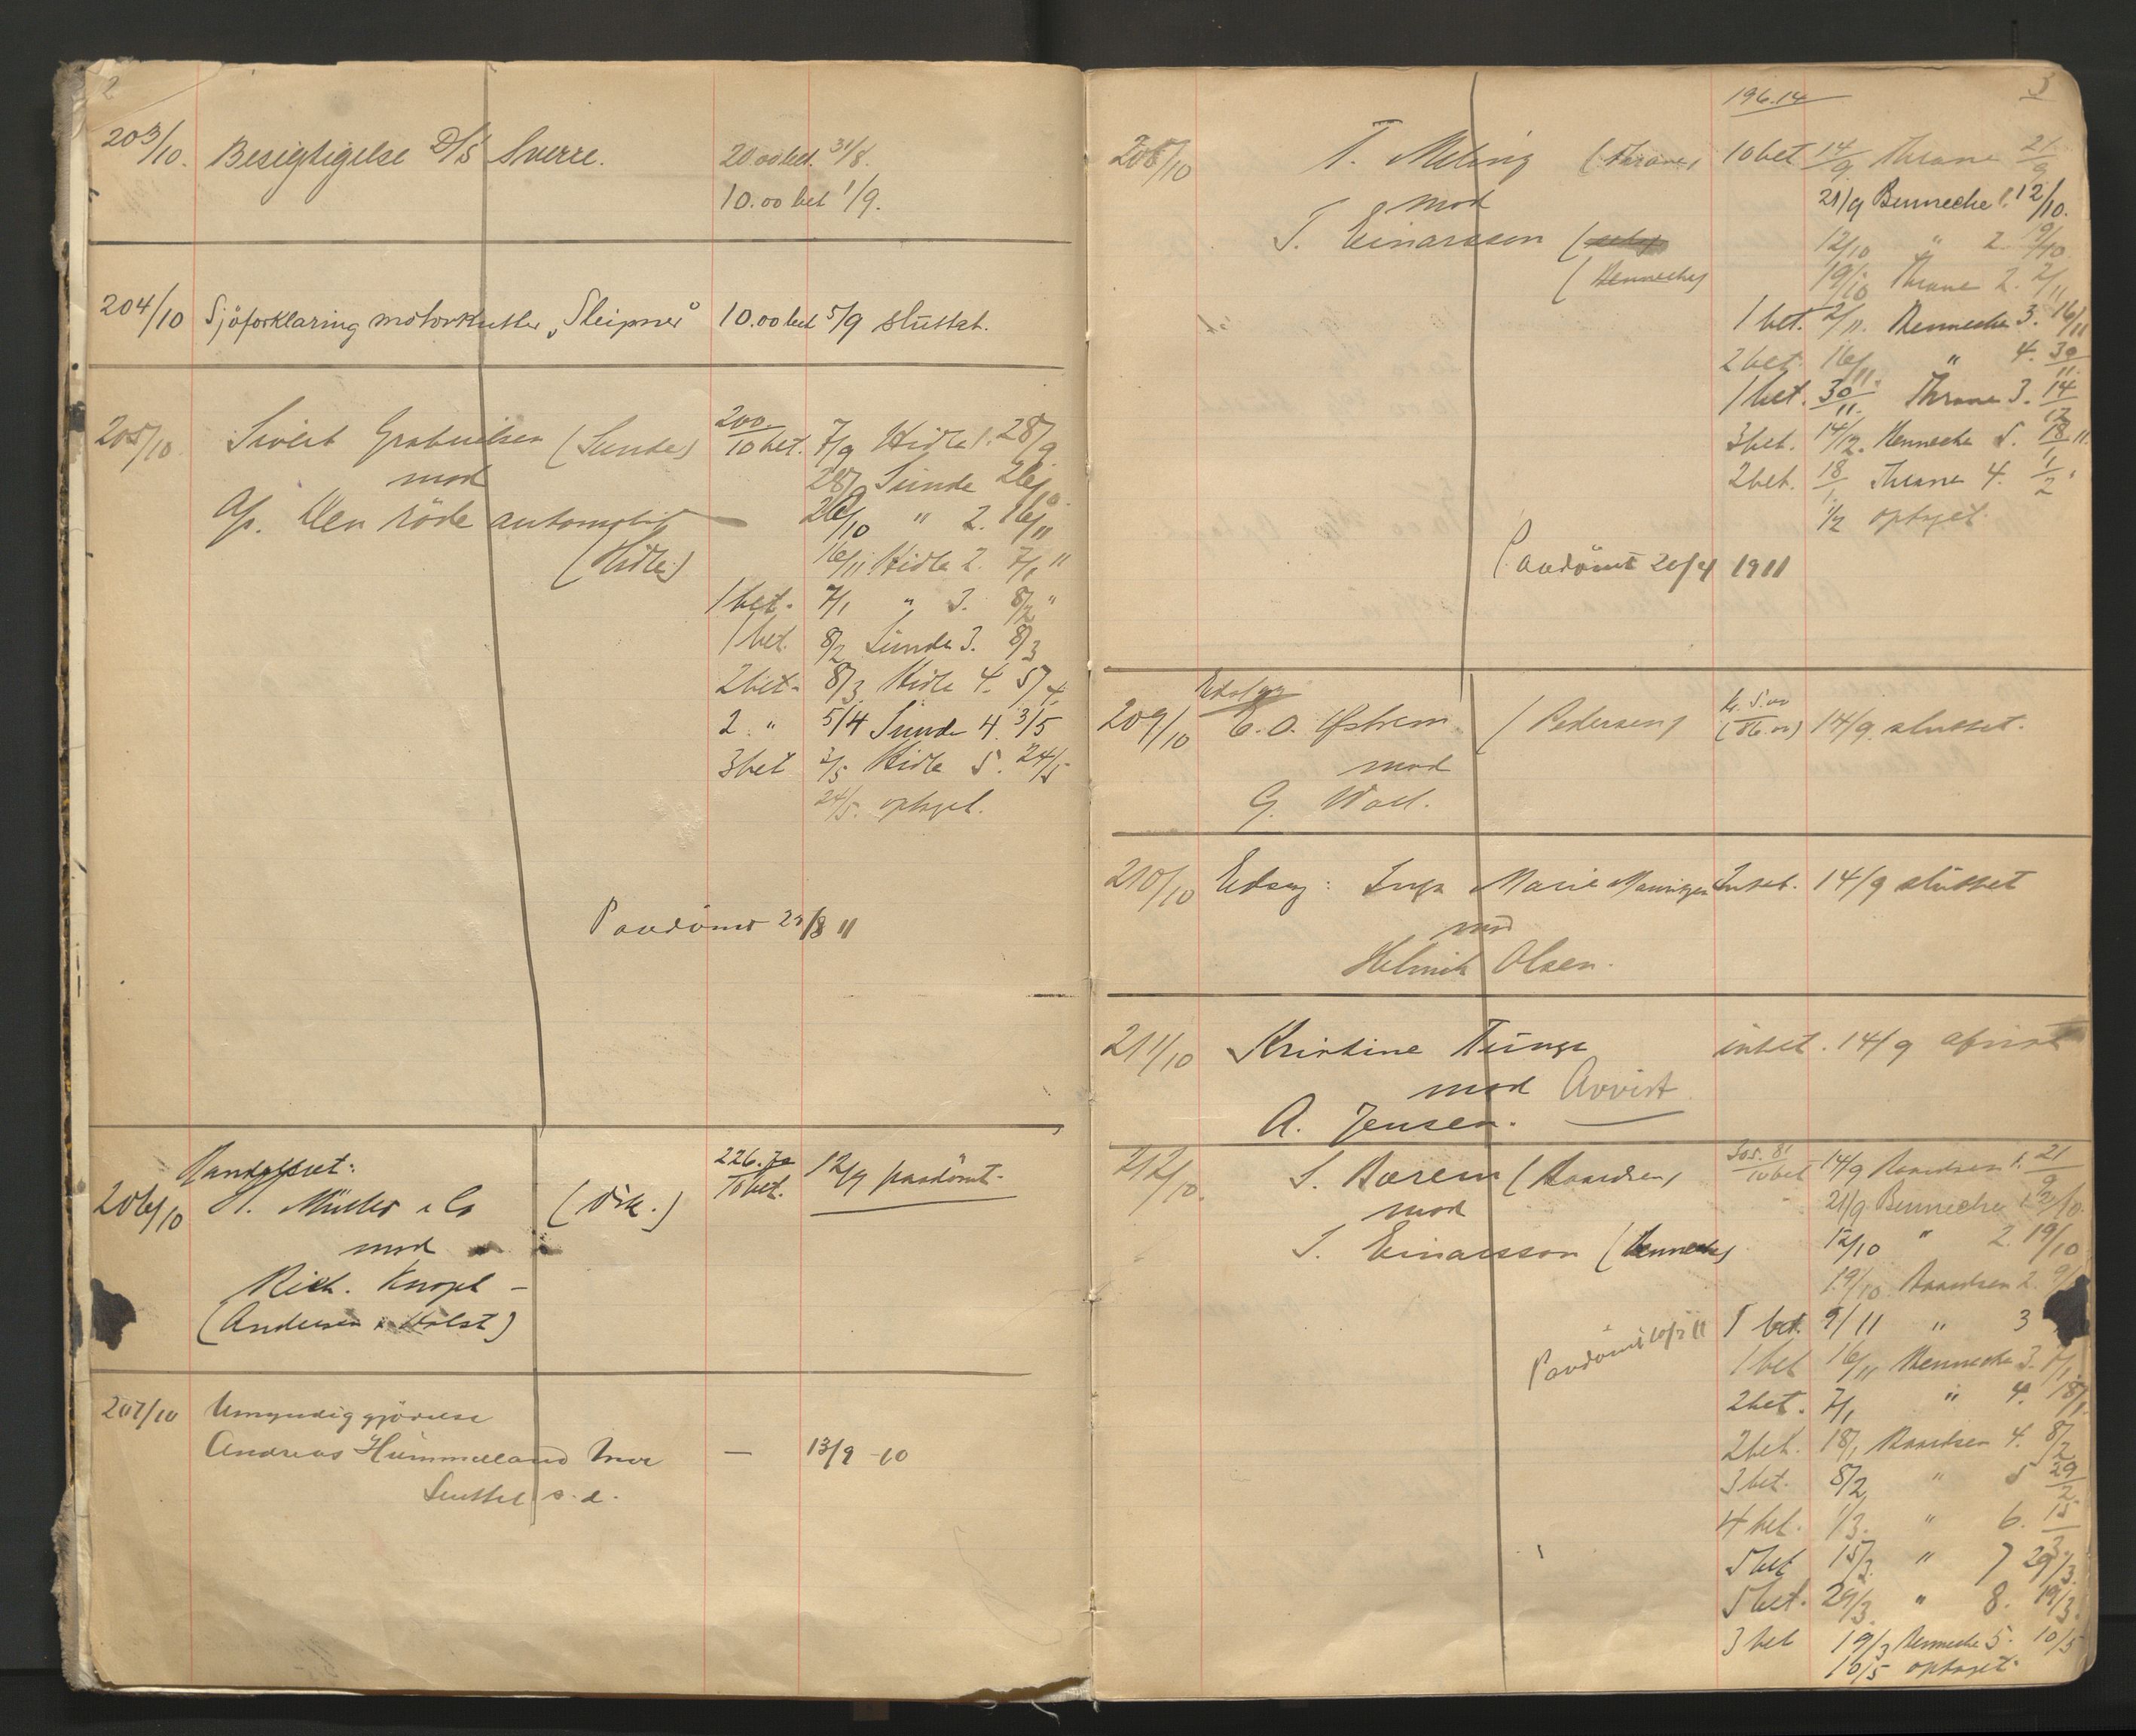 2
203/10. Besigtigelse D/S Sverre. 20.00 bet. 31/8.
10.00 bet 1/9.
204/10 Sjöforklaring motorkutter „Sleipner" 10.00 bet 5/9 sluttet.
205/10 Sivert Gabrielsen (Sunde) 200. 10 bet. 7/9 Hidle 1. 28/9
mod 28/9 Sunde 26/10
A/s. Den röde automobil 26/10 " 2. 16/11
(Hidle) 16/11 Hidle 2. 7/1 11
1 bet. 7/1 " 3. 8/2 "
1 bet. 8/2 Sunde 3. 8/3
2 bet. 8/3 Hidle 4. 5/4
2. " 5/4 Sunde 4. 3/5
3 bet 3/5 Hidle 5. 24/5
24/5. optaget.
Paadömt 11
206/10 H. Müller & Co (Vik.) 226.70 10 bet. 12/9 paadömt.
mod
Rich. Knoph
(Andersen & Holst)
207/10 Umyndiggjörelse
Andreas Hummeland Moe — 13/9 -10
Sluttet s. d.
3
196.14
208/10 T. Meling (Thrane) 10 bet 14/9 Thrane 21/9
mod 21/9 Benneche 1. 12/10.
S. Einarsson 12/10 " 2. 19/10
(Benneche) 19/10 Thrane 2. 2/11
1 bet. 2/11. Benneche 3. 16/11
2 bet. 16/11 " 4. 30/11.
1 bet. 30/11. Thrane 3. 14/12
3 bet. 14/12. Benneche 5. 18/1 11.
2 bet. 18/1. Thrane 4. 1/2.
1/2 optaget.
Paadömt 1911
209/10 C. O. (Pedersen) Kr. 5.00 14/9 sluttet.
mod
G. Wall.
210/10 Edsag: Inga Marie Mauritzen Intet. 14/9 sluttet
mod
Helmik Olsen.
211/10 Kristine Tunge intet. 14/9 afvist
mod Avvist
A. Jensen.
212/10. S. Barem (Baardsen) 305.81 10 bet 14/9 Baardsen 1. 21/9
mod 21/9 Benneche 1. 12/10.
S. Einarsson (Benneche) 12/10 " 2. 19/10
19/10 Baardsen 2. 9/11
1 bet. 9/11 " 3
Paadömt 11
1 bet 16/11 Benneche 3. 7/1
2 bet. 7/1 " 4. 18/1.
2 bet. 18/1 Baardsen 4. 8/2
3 bet. 8/2 " 5 29/2
4 bet. 1/3. " 6. 15/3.
5 bet 15/3. " 7 29/3.
5 bet. 29/3. " 8. 19/3.
3 bet 19/3 Benneche 5. 10/5
10/5 optaget.